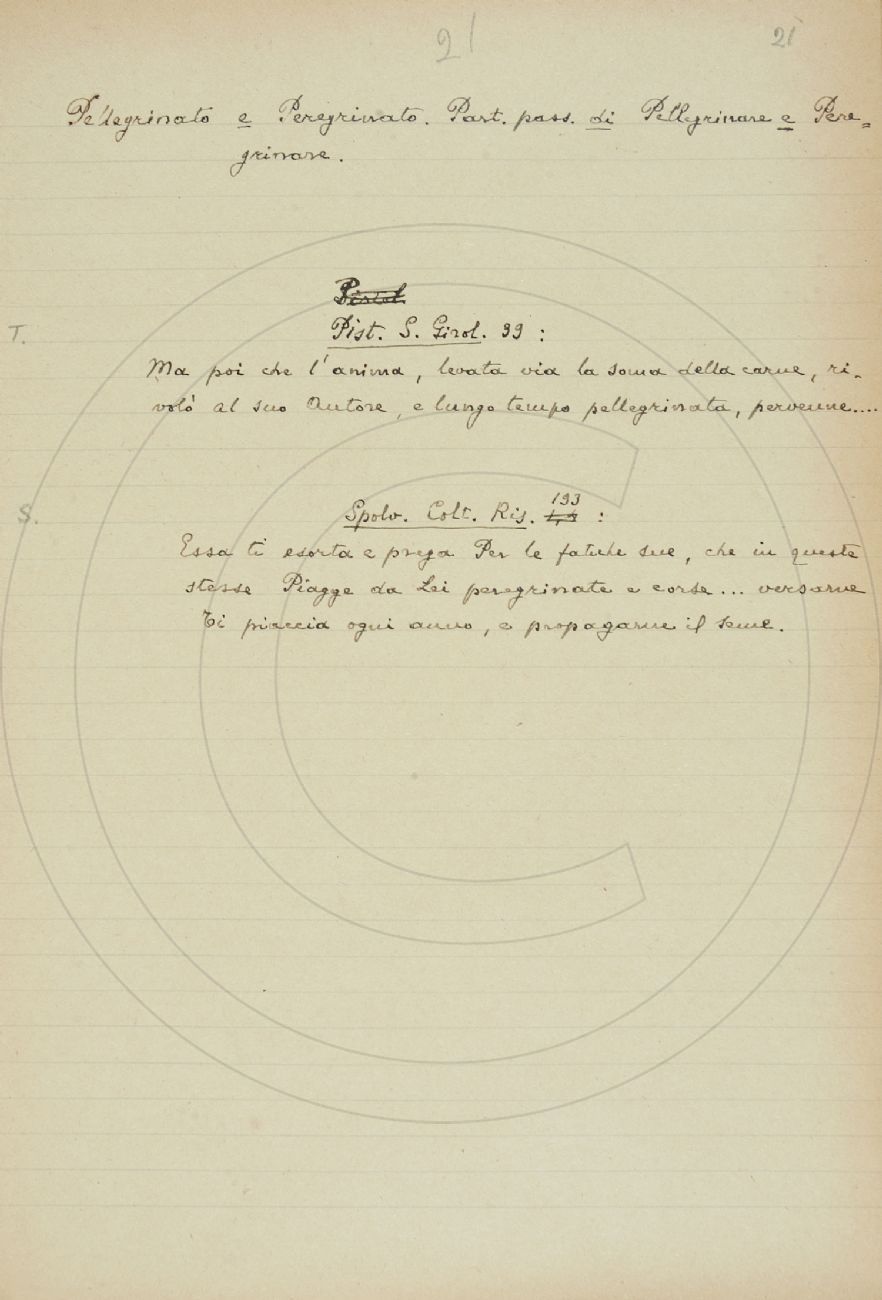 21 21
Pellegrinato e Peregrinato. Part. pass. di Pellegrinare e Pere=
grinare.
Pistol
T. Pist. S. Girol. 99 :
Ma poi che l'anima, levata via la soma della carne, ri-
volò al suo Autore, e lungo tempo pellegrinata, pervenne....
S. Spolv. Colt. Ris. 193 :
Essa ti esorta e prega Per le fatiche sue, che in queste
stesse Piagge da Lei peregrinate e corse... versarne
Ti piaccia ogni anno, e propagarne il seme.